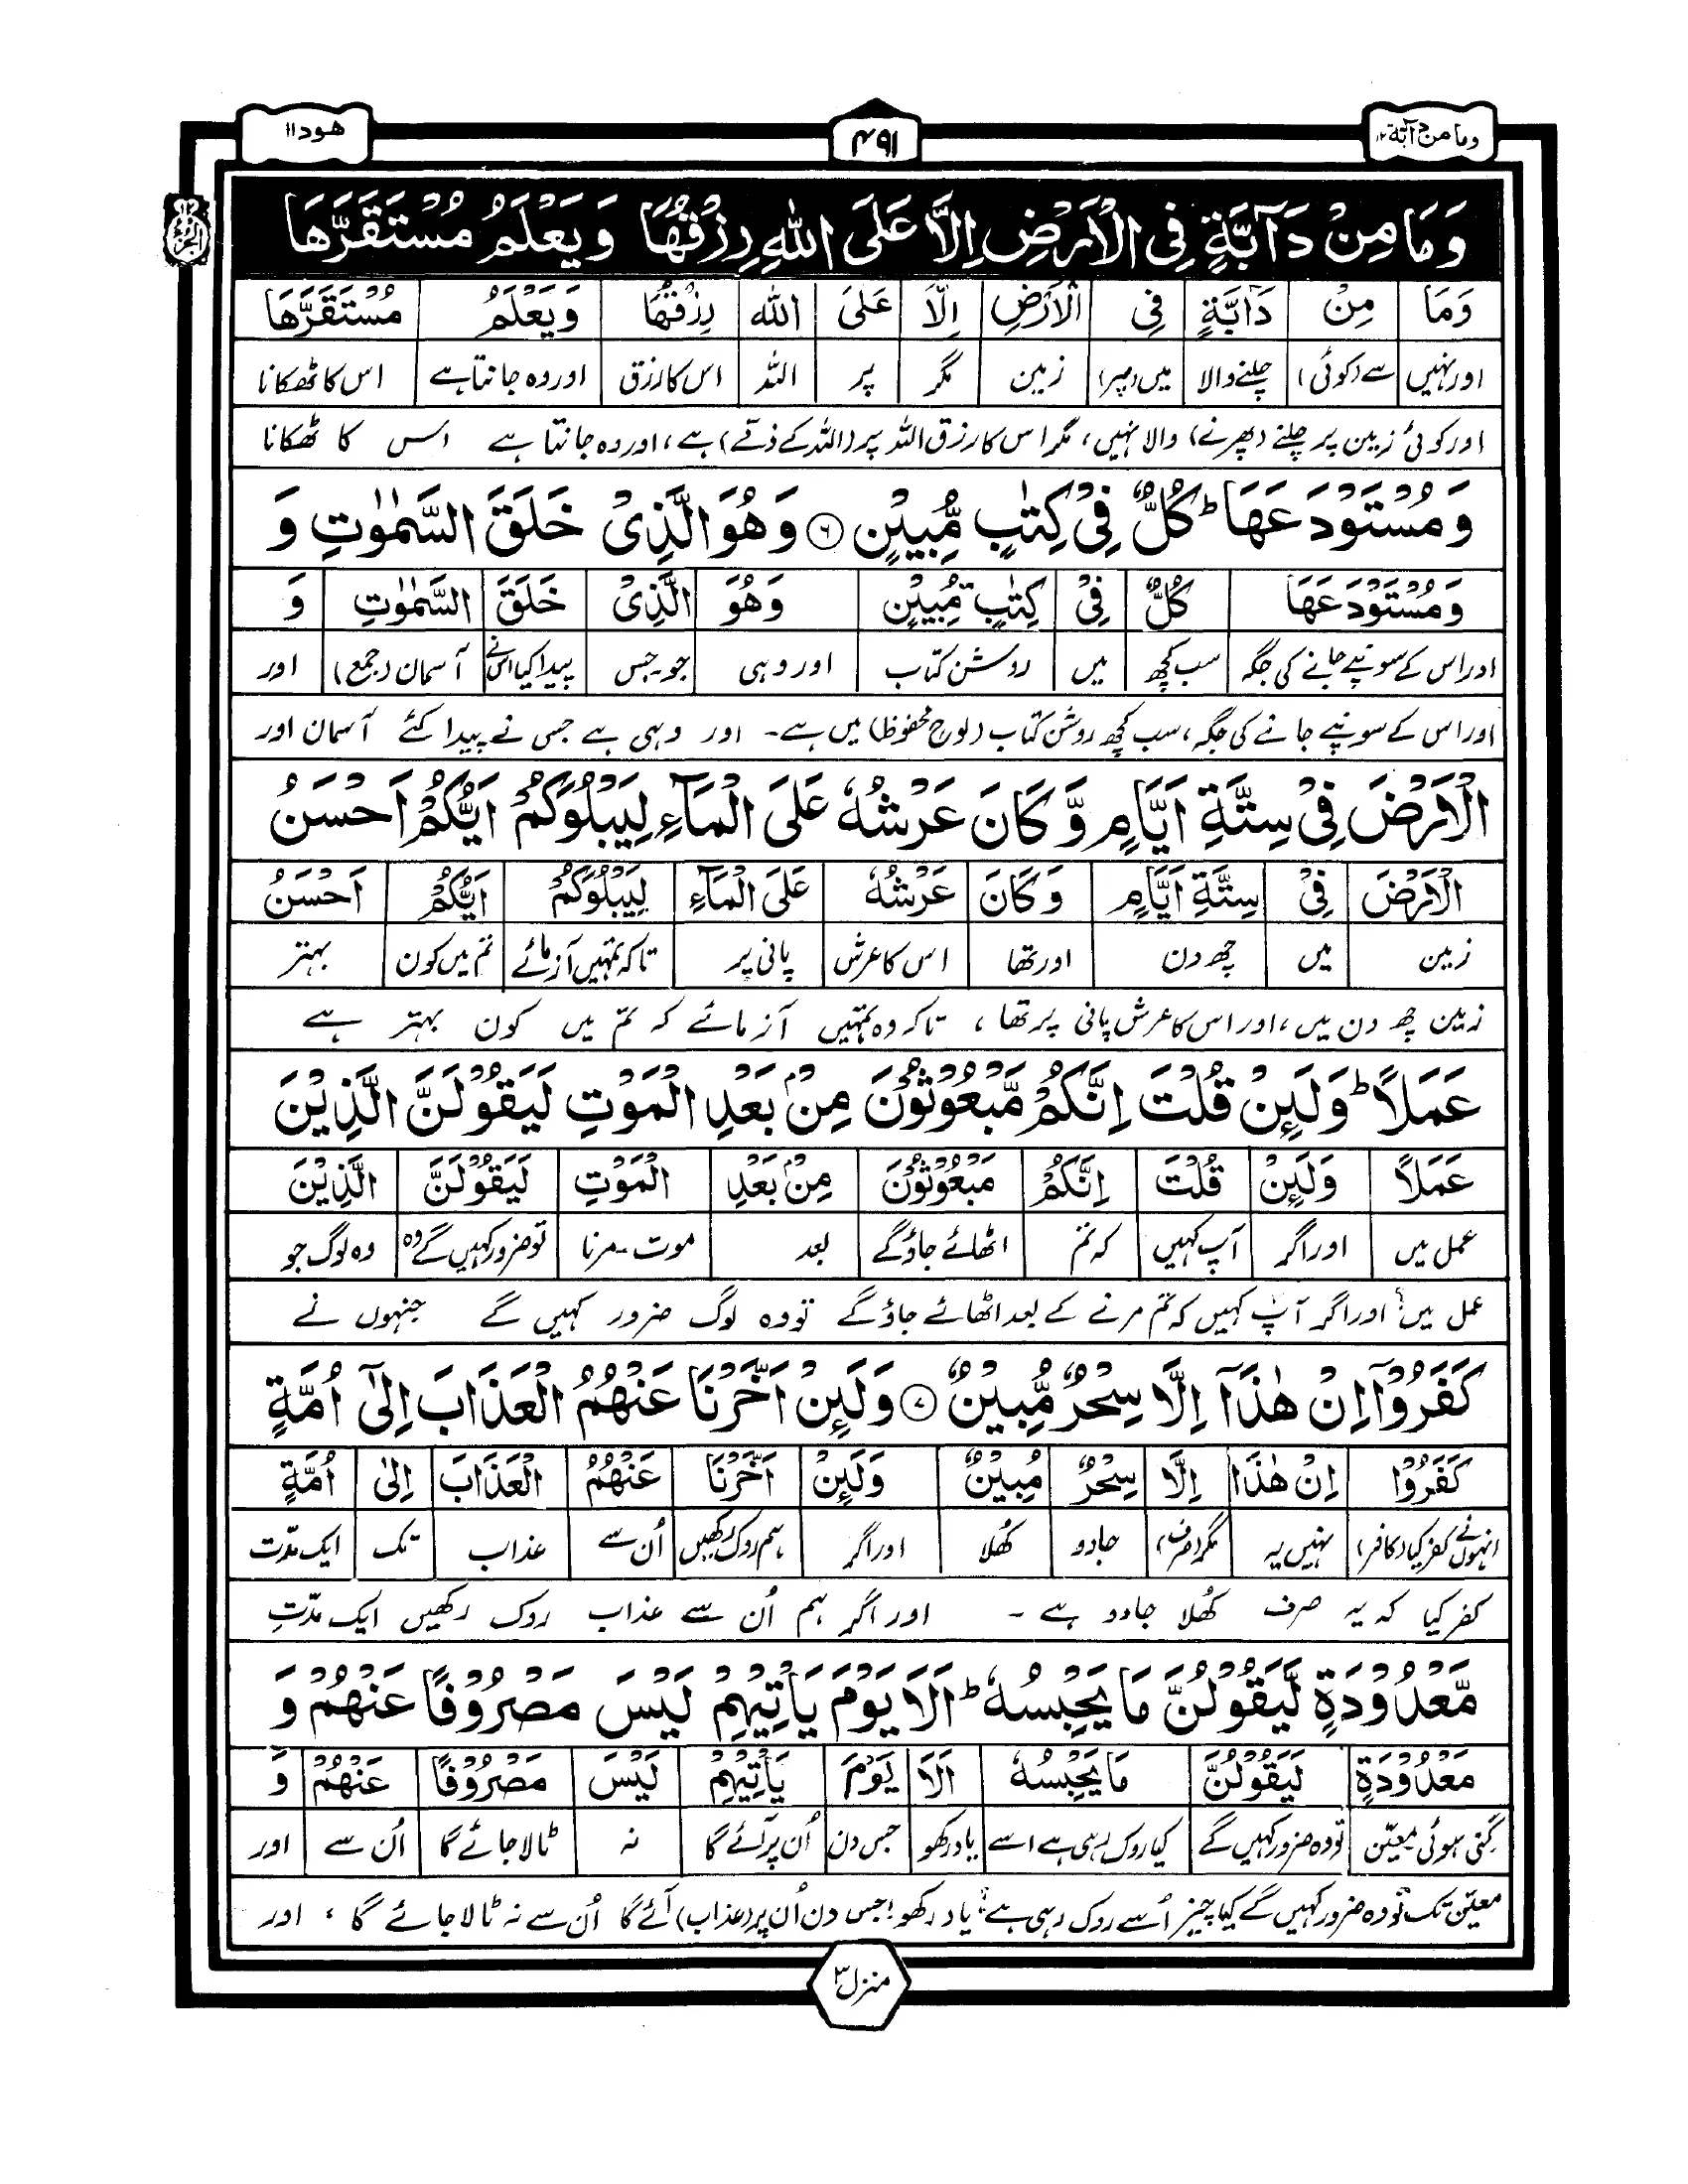 وما من دآبة ۱۲
۴۹۱
هود ۱۱
وَمَا مِنْ دَآبَّةٍ فِي الْاَرْضِ اِلَّا عَلَى اللّٰهِ رِزْقُهَا وَيَعْلَمُ مُسْتَقَرَّهَا
وَمَا مِنْ دَآبَّةٍ فِي الْاَرْضِ اِلَّا عَلَى اللّٰهِ رِزْقُهَا وَيَعْلَمُ مُسْتَقَرَّهَا
اور نہیں سے (کوئی) چلنے والا میں (پر) زمین مگر پر اللہ اس کا رزق اور وہ جانتا ہے اس کا ٹھکانا
اور کوئی زمین پر چلنے (پھرنے) والا نہیں، مگر اس کا رزق اللہ پر (اللہ کے ذمے) ہے، اور وہ جانتا ہے اس کا ٹھکانا
وَمُسْتَوْدَعَهَا ؕ كُلٌّ فِيْ كِتٰبٍ مُّبِيْنٍ ۶ وَهُوَ الَّذِيْ خَلَقَ السَّمٰوٰتِ وَ
وَمُسْتَوْدَعَهَا كُلٌّ فِيْ كِتٰبٍ مُبِيْنٍ وَهُوَ الَّذِيْ خَلَقَ السَّمٰوٰتِ وَ
اور اس کے سونپے جانے کی جگہ سب کچھ میں روشن کتاب اور وہی جو۔جس پیدا کیا اس نے آسمان (جمع) اور
اور اس کے سونپے جانے کی جگہ، سب کچھ روشن کتاب (لوح محفوظ) میں ہے۔ اور وہی ہے جس نے پیدا کئے آسمان اور
الْاَرْضَ فِيْ سِتَّةِ اَيَّامٍ وَّكَانَ عَرْشُهٗ عَلَى الْمَآءِ لِيَبْلُوَكُمْ اَيُّكُمْ اَحْسَنُ
الْاَرْضَ فِيْ سِتَّةِ اَيَّامٍ وَكَانَ عَرْشُهٗ عَلَى الْمَآءِ لِيَبْلُوَكُمْ اَيُّكُمْ اَحْسَنُ
زمین میں چھ دن اور تھا اس کا عرش پانی پر تاکہ تمہیں آزمائے تم میں کون بہتر
زمین چھ دن میں، اور اس کا عرش پانی پر تھا، تاکہ وہ تمہیں آزمائے کہ تم میں کون بہتر ہے
عَمَلًا ؕ وَلَئِنْ قُلْتَ اِنَّكُمْ مَّبْعُوْثُوْنَ مِنْۢ بَعْدِ الْمَوْتِ لَيَقُوْلَنَّ الَّذِيْنَ
عَمَلًا وَلَئِنْ قُلْتَ اِنَّكُمْ مَبْعُوْثُوْنَ مِنْۢ بَعْدِ الْمَوْتِ لَيَقُوْلَنَّ الَّذِيْنَ
عمل میں اور اگر آپ کہیں کہ تم اٹھائے جاؤگے بعد موت۔مرنا تو ضرور کہیں گے وہ وہ لوگ جو
عمل میں؟ اور اگر آپ کہیں کہ تم مرنے کے بعد اٹھائے جاؤگے تو وہ لوگ ضرور کہیں گے جنہوں نے
كَفَرُوْٓا اِنْ هٰذَآ اِلَّا سِحْرٌ مُّبِيْنٌ ۷ وَلَئِنْ اَخَّرْنَا عَنْهُمُ الْعَذَابَ اِلٰٓى اُمَّةٍ
كَفَرُوْا اِنْ هٰذَا اِلَّا سِحْرٌ مُبِيْنٌ وَلَئِنْ اَخَّرْنَا عَنْهُمُ الْعَذَابَ اِلٰى اُمَّةٍ
انہوں نے کفر کیا (کافر) نہیں یہ مگر (صرف) جادو کُھلا اور اگر ہم روک رکھیں اُن سے عذاب تک ایک مدّت
کفر کیا کہ یہ صرف کُھلا جادو ہے۔ اور اگر ہم اُن سے عذاب روک رکھیں ایک مدّتِ
مَّعْدُوْدَةٍ لَّيَقُوْلُنَّ مَا يَحْبِسُهٗ ؕ اَلَا يَوْمَ يَاْتِيْهِمْ لَيْسَ مَصْرُوْفًا عَنْهُمْ وَ
مَعْدُوْدَةٍ لَيَقُوْلُنَّ مَا يَحْبِسُهٗ اَلَا يَوْمَ يَاْتِيْهِمْ لَيْسَ مَصْرُوْفًا عَنْهُمْ وَ
گنی ہوئی معیّن تو وہ ضرور کہیں گے کیا روک رہی ہے اسے یاد رکھو جس دن اُن پر آئے گا نہ ٹالا جائے گا اُن سے اور
معیّن تک تو وہ ضرور کہیں گے کیا چیز اُسے روک رہی ہے؟ یاد رکھو! جس دن اُن پر (عذاب) آئے گا اُن سے نہ ٹالا جائے گا، اور
منزل ۳